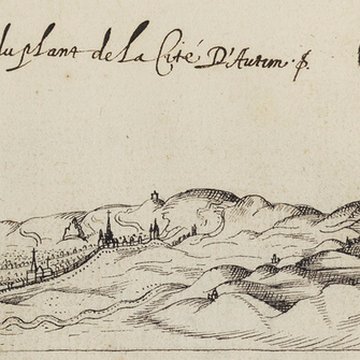 du plant de la Cité D'Autun. $.